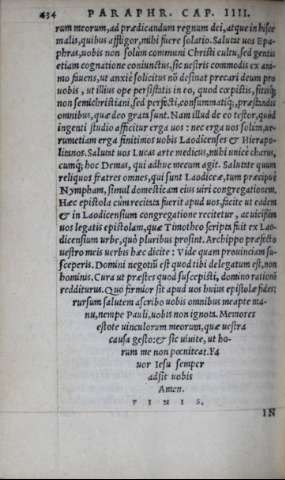 434 PARAPHR. CAP. IIII.
rum meorum, ad prædicandum regnum dei, atque in hisce
malis, quibus affligor, mihi fuere solatio. Salutat uos Epa-
phras, uobis non solum communi Christi cultu, sed gentis
etiam cognatione coniunctus, sic uestris commodis ex ani-
mo fauens, ut anxie solicitus nō desinat precari deum pro
uobis, ut illius ope persistatis in eo, quod cœpistis, sitisq́;
non semichristiani, sed perfecti, consummatiq́;, præstandis
omnibus, quæ deo grata sunt. Nam illud de eo testor, quòd
ingenti studio afficitur erga uos: nec erga uos solùm, ue-
rumetiam erga finitimos uobis Laodicenses & Hierapo-
litanos. Salutat uos Lucas arte medicus, mihi unicè charus,
cumq́; hoc Demas, qui adhuc mecum agit. Salutate quum
reliquos fratres omnes, qui sunt Laodiceæ, tum præcipuè
Nympham, simul domesticam eius uiri congregationem.
Hæc epistola cùm recitata fuerit apud uos, facite ut eadem
& in Laodicensium congregatione recitetur, ac uicissim
uos legatis epistolam, quæ Timotheo scripta fuit ex Lao-
dicensium urbe, quò pluribus prosint. Archippo præfecto
uestro meis uerbis hæc dicite: Vide quam prouinciam su-
sceperis. Domini negotiū est quod tibi delegatum est, non
hominis. Cura ut præstes quod suscepisti, domino rationē
redditurus. Quo firmior sit apud uos huius epistolæ fides:
rursum salutem ascribo uobis omnibus meapte ma-
nu, nempe Pauli, uobis non ignota. Memores
estote uinculorum meorum, quæ uestra
causa gesto: & sic uiuite, ut ho-
rum me non pœniteat. Fa
uor Iesu semper
adsit uobis
Amen.
FINIS.
IN